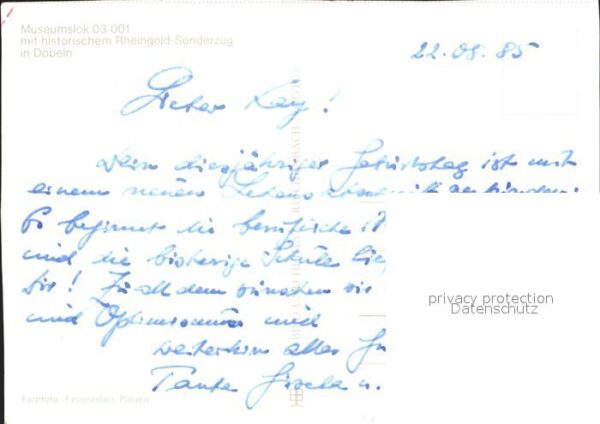 Museumslok 03 001
mit historischem Rheingold-Sonderzug
in Döbeln
22.08.85
Lieber Kay!
Dein diesjähriger Geburtstag ist mit
einem neuen Lebensabschnitt verbunden:
Es beginnt die berufliche
und die bisherige Schule
Dir! Zu all dem wünschen wir
und Optimismus und
weiterhin alles
Tante Gisela u.
privacy protection
Datenschutz
Farbfoto: Feuereißen, Plauen